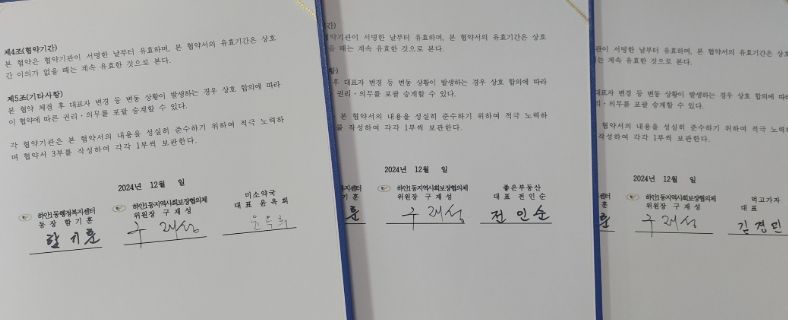 제4조(협약기간)
본 협약은 협약기관이 서명한 날부터 유효하며, 본 협약서의 유효기간은 상호
간 이의가 없을 때는 계속 유효한 것으로 본다.
제5조(기타사항)
본 협약 체결 후 대표자 변경 등 변동 상황이 발생하는 경우 상호 합의에 따라
이 협약에 따른 권리·의무를 포괄 승계할 수 있다.
각 협약기관은 본 협약서의 내용을 성실히 준수하기 위하여 적극 노력하
며 협약서 3부를 작성하여 각각 1부씩 보관한다.
2024년 12월 일
하안1동행정복지센터
동장 함기훈
함기훈
하안1동지역사회보장협의체
위원장 구재성
구재성
미소약국
대표 윤옥희
윤옥희
간)
약기관이 서명한 날부터 유효하며, 본 협약서의 유효기간은 상호
을 때는 계속 유효한 것으로 본다.
항)
후 대표자 변경 등 변동 상황이 발생하는 경우 상호 합의에 따라
권리·의무를 포괄 승계할 수 있다.
본 협약서의 내용을 성실히 준수하기 위하여 적극 노력하
를 작성하여 각각 1부씩 보관한다.
2024년 12월 일
복지센터
훈
훈
하안1동지역사회보장협의체
위원장 구재성
구재성
좋은부동산
대표 전인순
전인순
관이 서명한 날부터 유효하며, 본 협약서의 유효기간은 상호
는 계속 유효한 것으로 본다.
대표자 변경 등 변동 상황이 발생하는 경우 상호 합의에 따
리·의무를 포괄 승계할 수 있다.
협약서의 내용을 성실히 준수하기 위하여 적극 노력
작성하여 각각 1부씩 보관한다.
2024년 12월 일
센터
훈
훈
하안1동지역사회보장협의체
위원장 구재성
구재성
먹고가자
대표 김경민
김경민